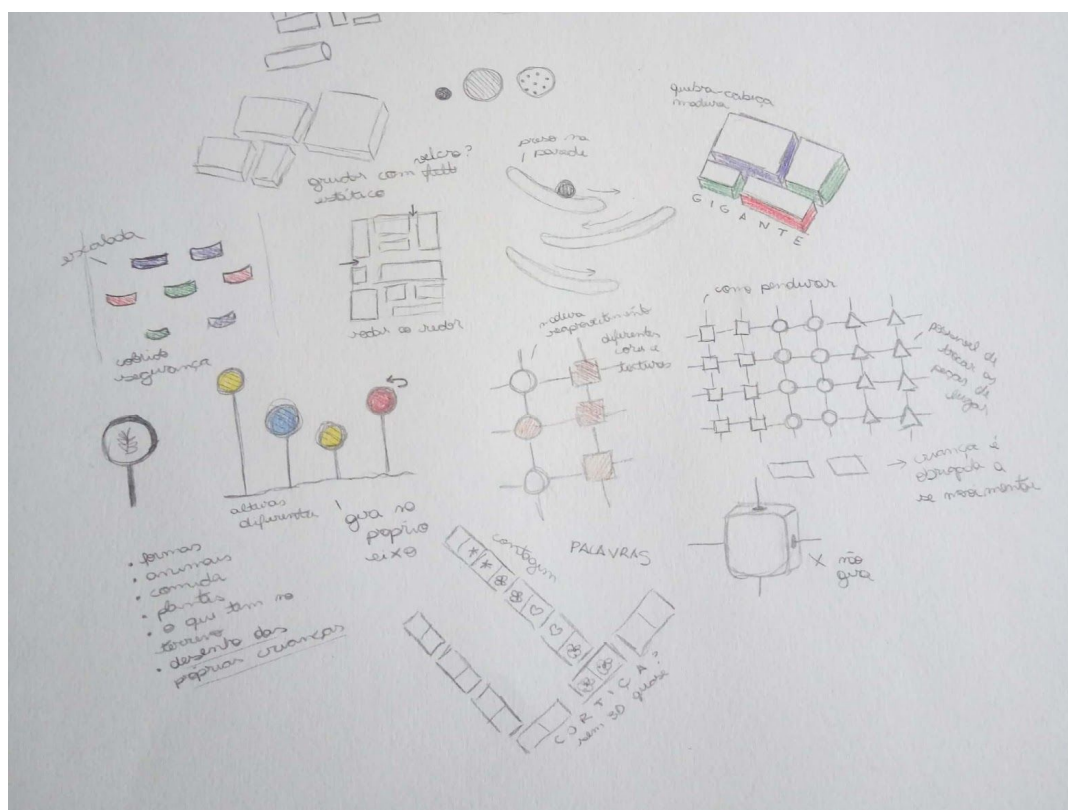 quebra-cabeça
madeira
GIGANTE
preso na
parede
velcro?
grudar com
estático
escalada
colorido
segurança
rodar ao redor
madeira
reaproveitamento
diferentes
cores e
texturas
como pendurar
possível de
trocar as
peças de
lugar
→ criança é
obrigada a
se movimentar
alturas
diferentes
gira no
próprio
eixo
X não
gira
• formas
• animais
• comida
• plantas
• o que tem no
terreno
• desenho das
próprias crianças
contagem
PALAVRAS
CORTIÇA?
sem 3D quase